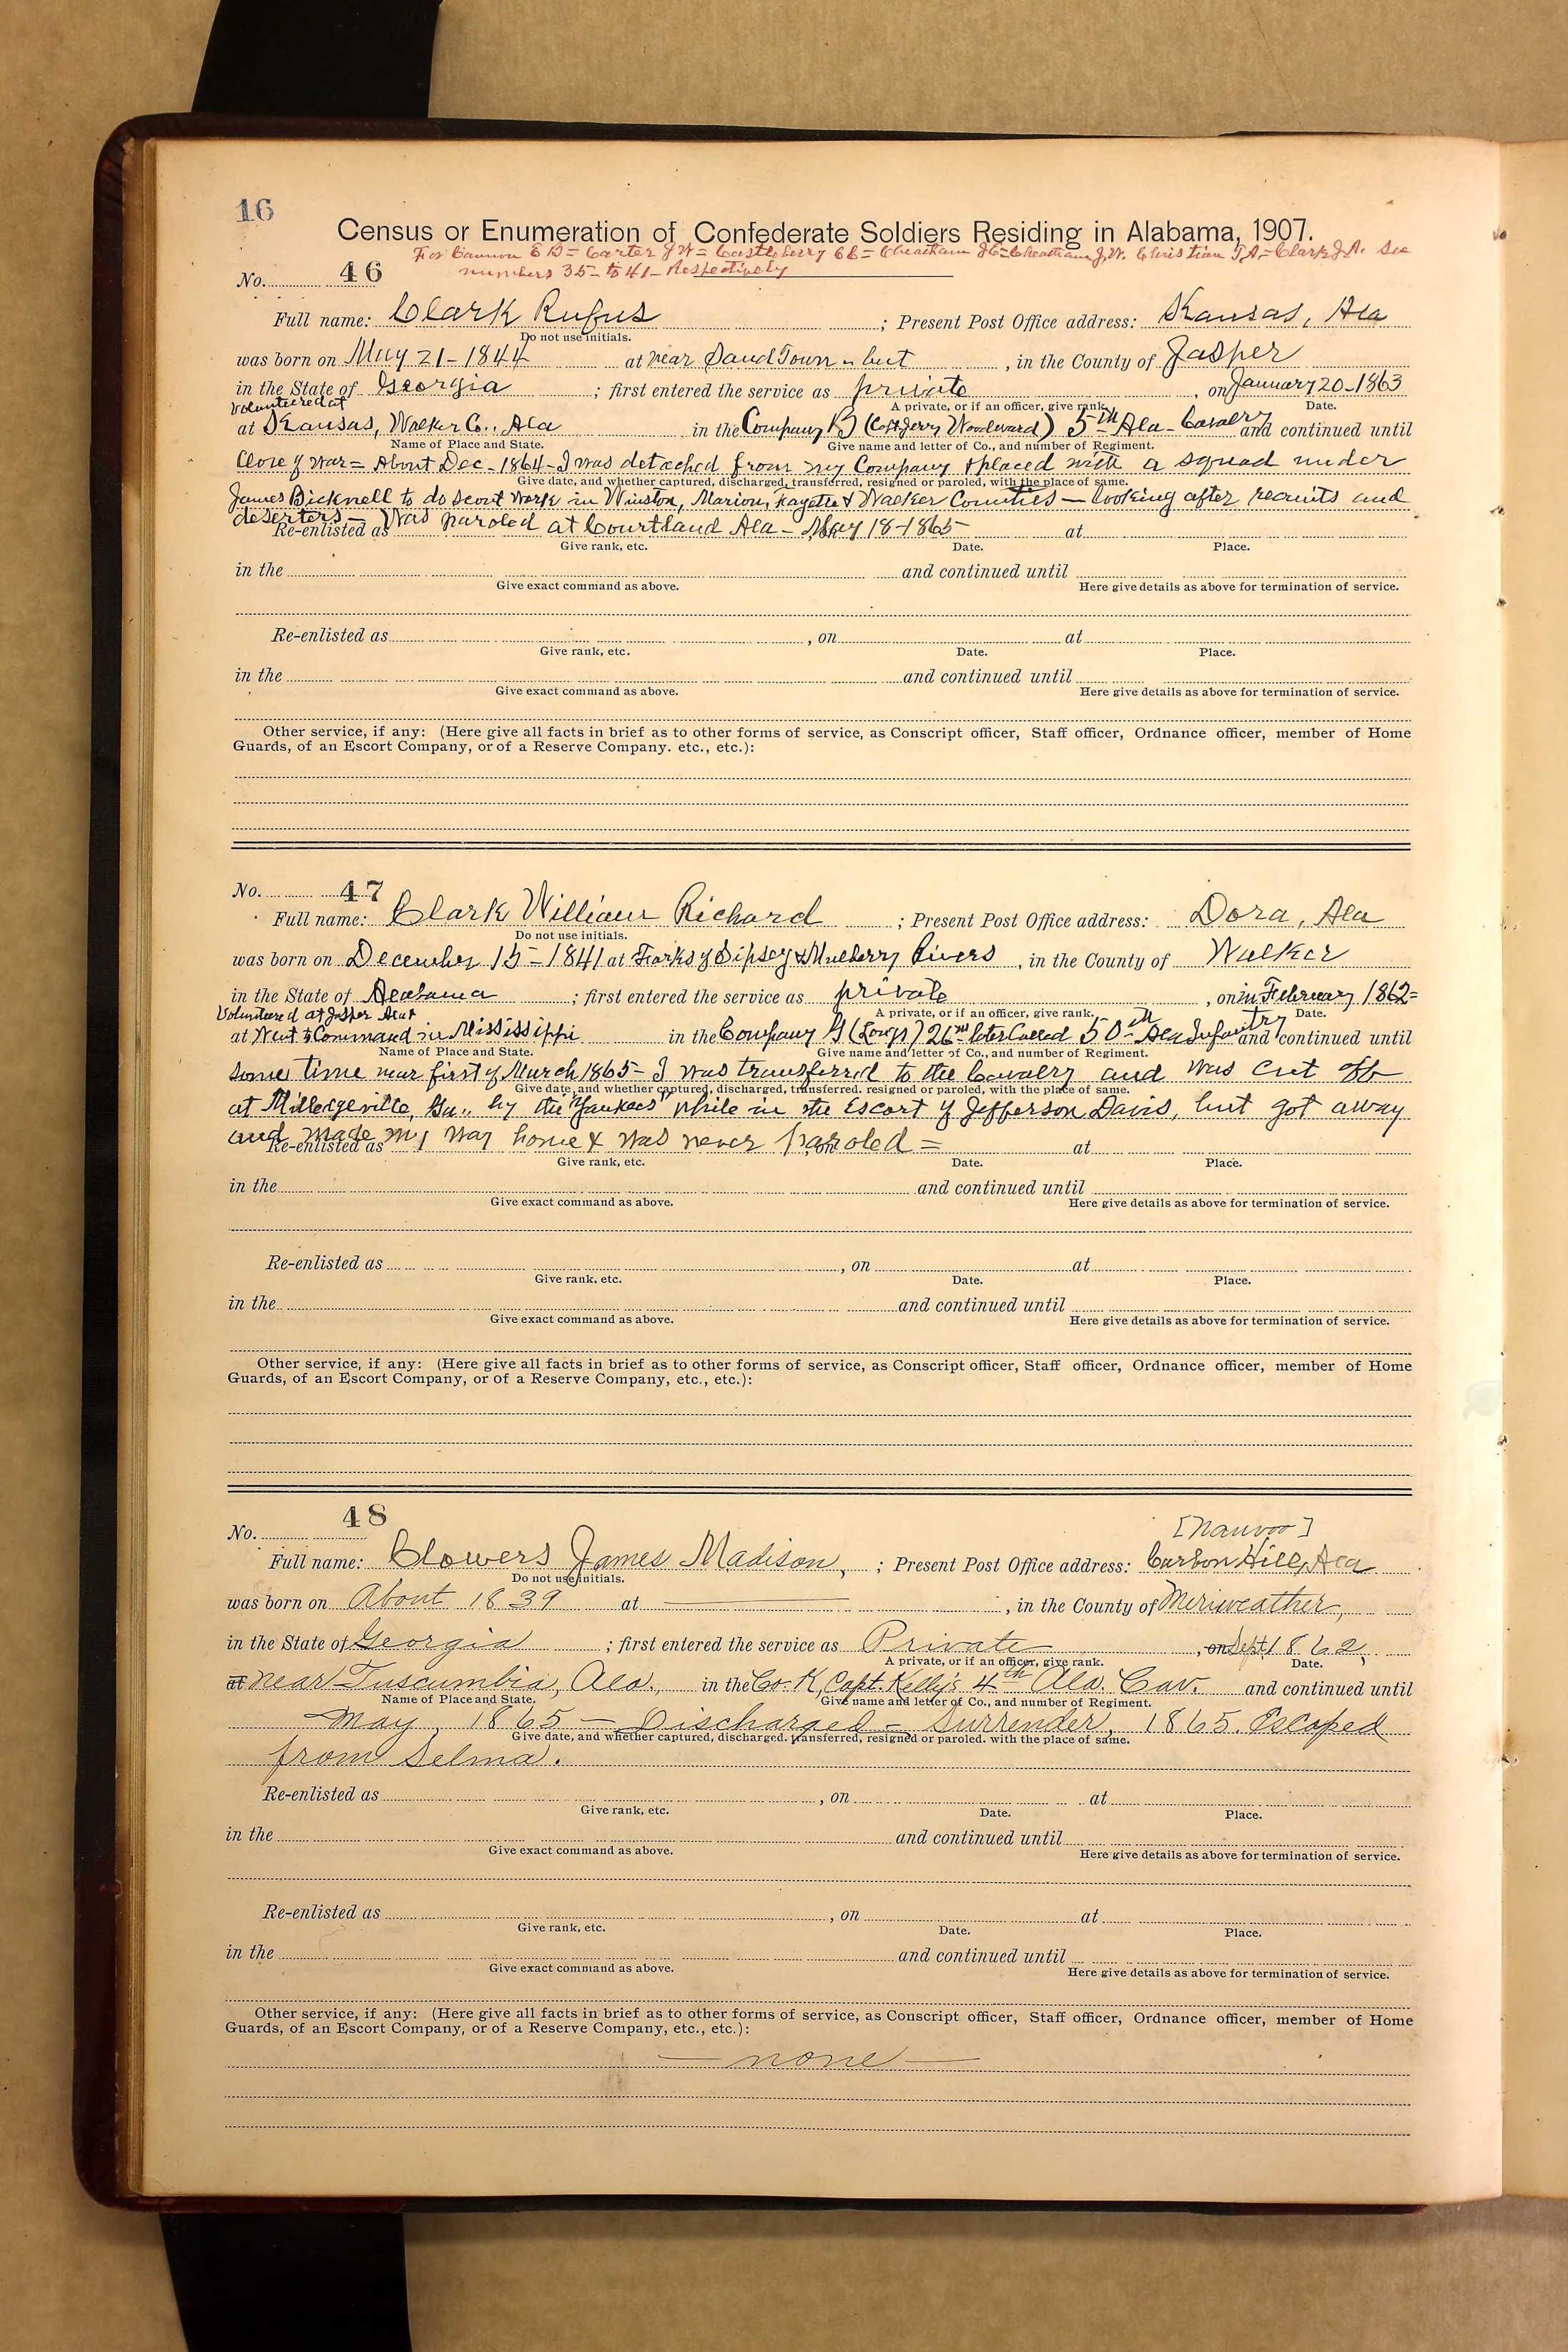 16
Census or Enumeration of Confederate Soldiers Residing in Alabama, 1907.
For Cannon E B = Carter J W = Castleberry = Cheatham = Cheatham J.W. Christian T A = Clark J.A. See
numbers 35 to 41 - Respectively
No. 46
Full name: Clark Rufus ; Present Post Office address: Kansas, Ala
Do not use initials.
was born on May 21-1844 at near Sand Town but , in the County of Jasper
in the State of Georgia ; first entered the service as private , on January 20-1863
Volunteered at A private, or if an officer, give rank. Date.
at Kansas, Walker Co., Ala in the Company B (Capt Jerry Woodward) 5th Ala - Cavalry and continued until
Name of Place and State. Give name and letter of Co., and number of Regiment.
Close of war = About Dec - 1864 - I was detached from my Company & placed with a squad under
Give date, and whether captured, discharged, transferred, resigned or paroled, with the place of same.
James Bicknell to do scout work in Winston, Marion, Fayette & Walker Counties - looking after recruits and
deserters - Was paroled at Courtland Ala - May 18-1865
Re-enlisted as , on at
Give rank, etc. Date. Place.
in the and continued until
Give exact command as above. Here give details as above for termination of service.
Re-enlisted as , on at
Give rank, etc. Date. Place.
in the and continued until
Give exact command as above. Here give details as above for termination of service.
Other service, if any: (Here give all facts in brief as to other forms of service, as Conscript officer, Staff officer, Ordnance officer, member of Home
Guards, of an Escort Company, or of a Reserve Company. etc., etc.):
No. 47
Full name: Clark William Richard ; Present Post Office address: Dora, Ala
Do not use initials.
was born on December 15-1841 at Forks of Sipsey & Mulberry Rivers , in the County of Walker
in the State of Alabama ; first entered the service as private , on in February 1862=
Volunteered at Jasper but A private, or if an officer, give rank. Date.
at Went to Command in Mississippi in the Company G (Longs) 26th later Called 50th Ala Infantry and continued until
Name of Place and State. Give name and letter of Co., and number of Regiment.
some time near first of March 1865 - I was transferred to the Cavalry and was cut off
Give date, and whether captured, discharged, transferred. resigned or paroled, with the place of same.
at Milledgeville, Ga., by the "Yankees" while in the Escort of Jefferson Davis, but got away
and made my way home & was never paroled =
Re-enlisted as , on at
Give rank, etc. Date. Place.
in the and continued until
Give exact command as above. Here give details as above for termination of service.
Re-enlisted as , on at
Give rank, etc. Date. Place.
in the and continued until
Give exact command as above. Here give details as above for termination of service.
Other service, if any: (Here give all facts in brief as to other forms of service, as Conscript officer, Staff officer, Ordnance officer, member of Home
Guards, of an Escort Company, or of a Reserve Company, etc., etc.):
No. 48
[Nauvoo]
Full name: Clowers James Madison, ; Present Post Office address: Carbon Hill, Ala
Do not use initials.
was born on About 1839 at , in the County of Meriweather,
in the State of Georgia ; first entered the service as Private , on Sept. 1862,
A private, or if an officer, give rank. Date.
at near Tuscumbia, Ala., in the Co. K, Capt. Kelly's 4th Ala. Cav. and continued until
Name of Place and State. Give name and letter of Co., and number of Regiment.
May, 1865 - Discharged - Surrender, 1865. Escaped
Give date, and whether captured, discharged. transferred, resigned or paroled. with the place of same.
from Selma.
Re-enlisted as , on at
Give rank, etc. Date. Place.
in the and continued until
Give exact command as above. Here give details as above for termination of service.
Re-enlisted as , on at
Give rank, etc. Date. Place.
in the and continued until
Give exact command as above. Here give details as above for termination of service.
Other service, if any: (Here give all facts in brief as to other forms of service, as Conscript officer, Staff officer, Ordnance officer, member of Home
Guards, of an Escort Company, or of a Reserve Company, etc., etc.):
- none -